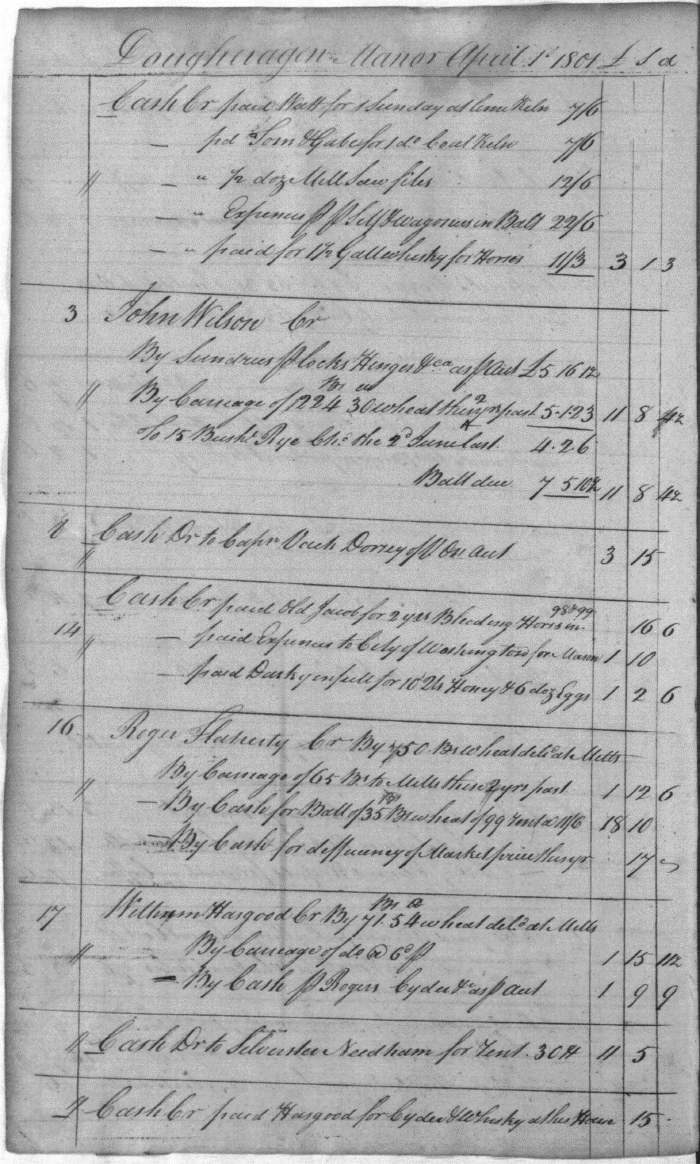 Doughoragen Manor April 1st 1801 £ s d
Cash Cr paid Watt for 1 Sunday at lime Keln 7/6
— pd Tom & Gabe for 1 do Coal Keln 7/6
" — " ½ doz Mill Saw files 12/6
— " Expences Self & wagoners in Balt 22/6
— " paid for 1½ Gall Whisky for Horses 11/3 3 1 3
3 John Wilson Cr
By Sundries locks Hinges &ca as p Act £5 16 1½
" By Carriage of 1224 30 wheat these 2 yrs past 5.12.3 11 8 4½
To 15 Bushs Rye Chd the 2d June last 4.2 6
Ball due 7 5 10½ 11 8 4½
8 Cash Dr to Capn Dorsey of Act 3 15
"
Cash Cr paid Old Jacob for 2 yrs Bleeding Horses in 98 & 99 16 6
14 " — paid Expences to City of Washington for Mason 1 10
— paid Darky in full for 10 2/4 Honey & 6 doz Eggs 1 2 6
16 Roger Flaherty Cr By 750 Bs wheat deld at Mills
" By Carriage of 65 Bs to Mills these 2 yrs past 1 12 6
— By Cash for Ball of 35 Bs wheat of 99 Rent a 11/6 18 10
— By Cash for defficiency of Market price this yr 17
17 William Hasgood Cr By 71.54 wheat deld at Mills
" By Carriage of do @ 6d p 1 15 11½
— By Cash p Rogers Cyder &c as p Act 1 9 9
" Cash Dr to Silvester Needham for Rent 30 11 5
" Cash Cr paid Hasgood for Cyder & Whisky at his House 15